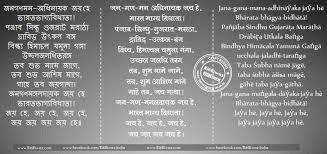 জনগণমন-অধিনায়ক জয় হে
ভারতভাগ্যবিধাতা!
পঞ্জাব সিন্ধু গুজরাট মরাঠা
দ্রাবিড় উৎকল বঙ্গ
বিন্ধ্য হিমাচল যমুনা গঙ্গা
উচ্ছলজলধিতরঙ্গ
তব শুভ নামে জাগে
তব শুভ আশিস মাগে,
গাহে তব জয়গাথা।
জনগণমঙ্গলদায়ক জয় হে
ভারতভাগ্যবিধাতা!
জয় হে, জয় হে, জয় হে,
জয় জয় জয়, জয় হে॥
जन-गण-मन अधिनायक जय हे,
भारत भाग्य विधाता।
पंजाब-सिन्धु-गुजरात-मराठा,
द्राविड़-उत्कल-बंग
विंध्य, हिमाचल यमुना गंगा,
उच्छल जलधि तरंग
तव, शुभ नामे जागे,
तव, शुभ आशिष मागे,
गाहे तव जय गाथा।
जन-गण-मंगलदायक जय हे,
भारत भाग्य विधाता।
जय हे, जय हे, जय हे,
जय जय जय जय हे॥
Jana-gana-mana-adhināyaka jaẏa hē
Bhārata-bhāgya-bidhātā!
Pañjāba Sindhu Gujarāṭa Marāṭhā
Drābiṛa Utkala Baṅga
Bindhya Himācala Yamunā Gaṅgā
ucchala-jaladhi-taraṅga
Taba Śubha nāmē jāgē,
taba śubha āśisa māgē,
gāhē taba jaẏa-gāthā.
Jana-gana-maṅgala-dāẏaka jaẏa hē,
Bhārata-bhāgya-bidhātā!
Jaẏa hē, jaẏa hē, jaẏa hē,
jaẏa jaẏa jaẏa jaẏa hē.